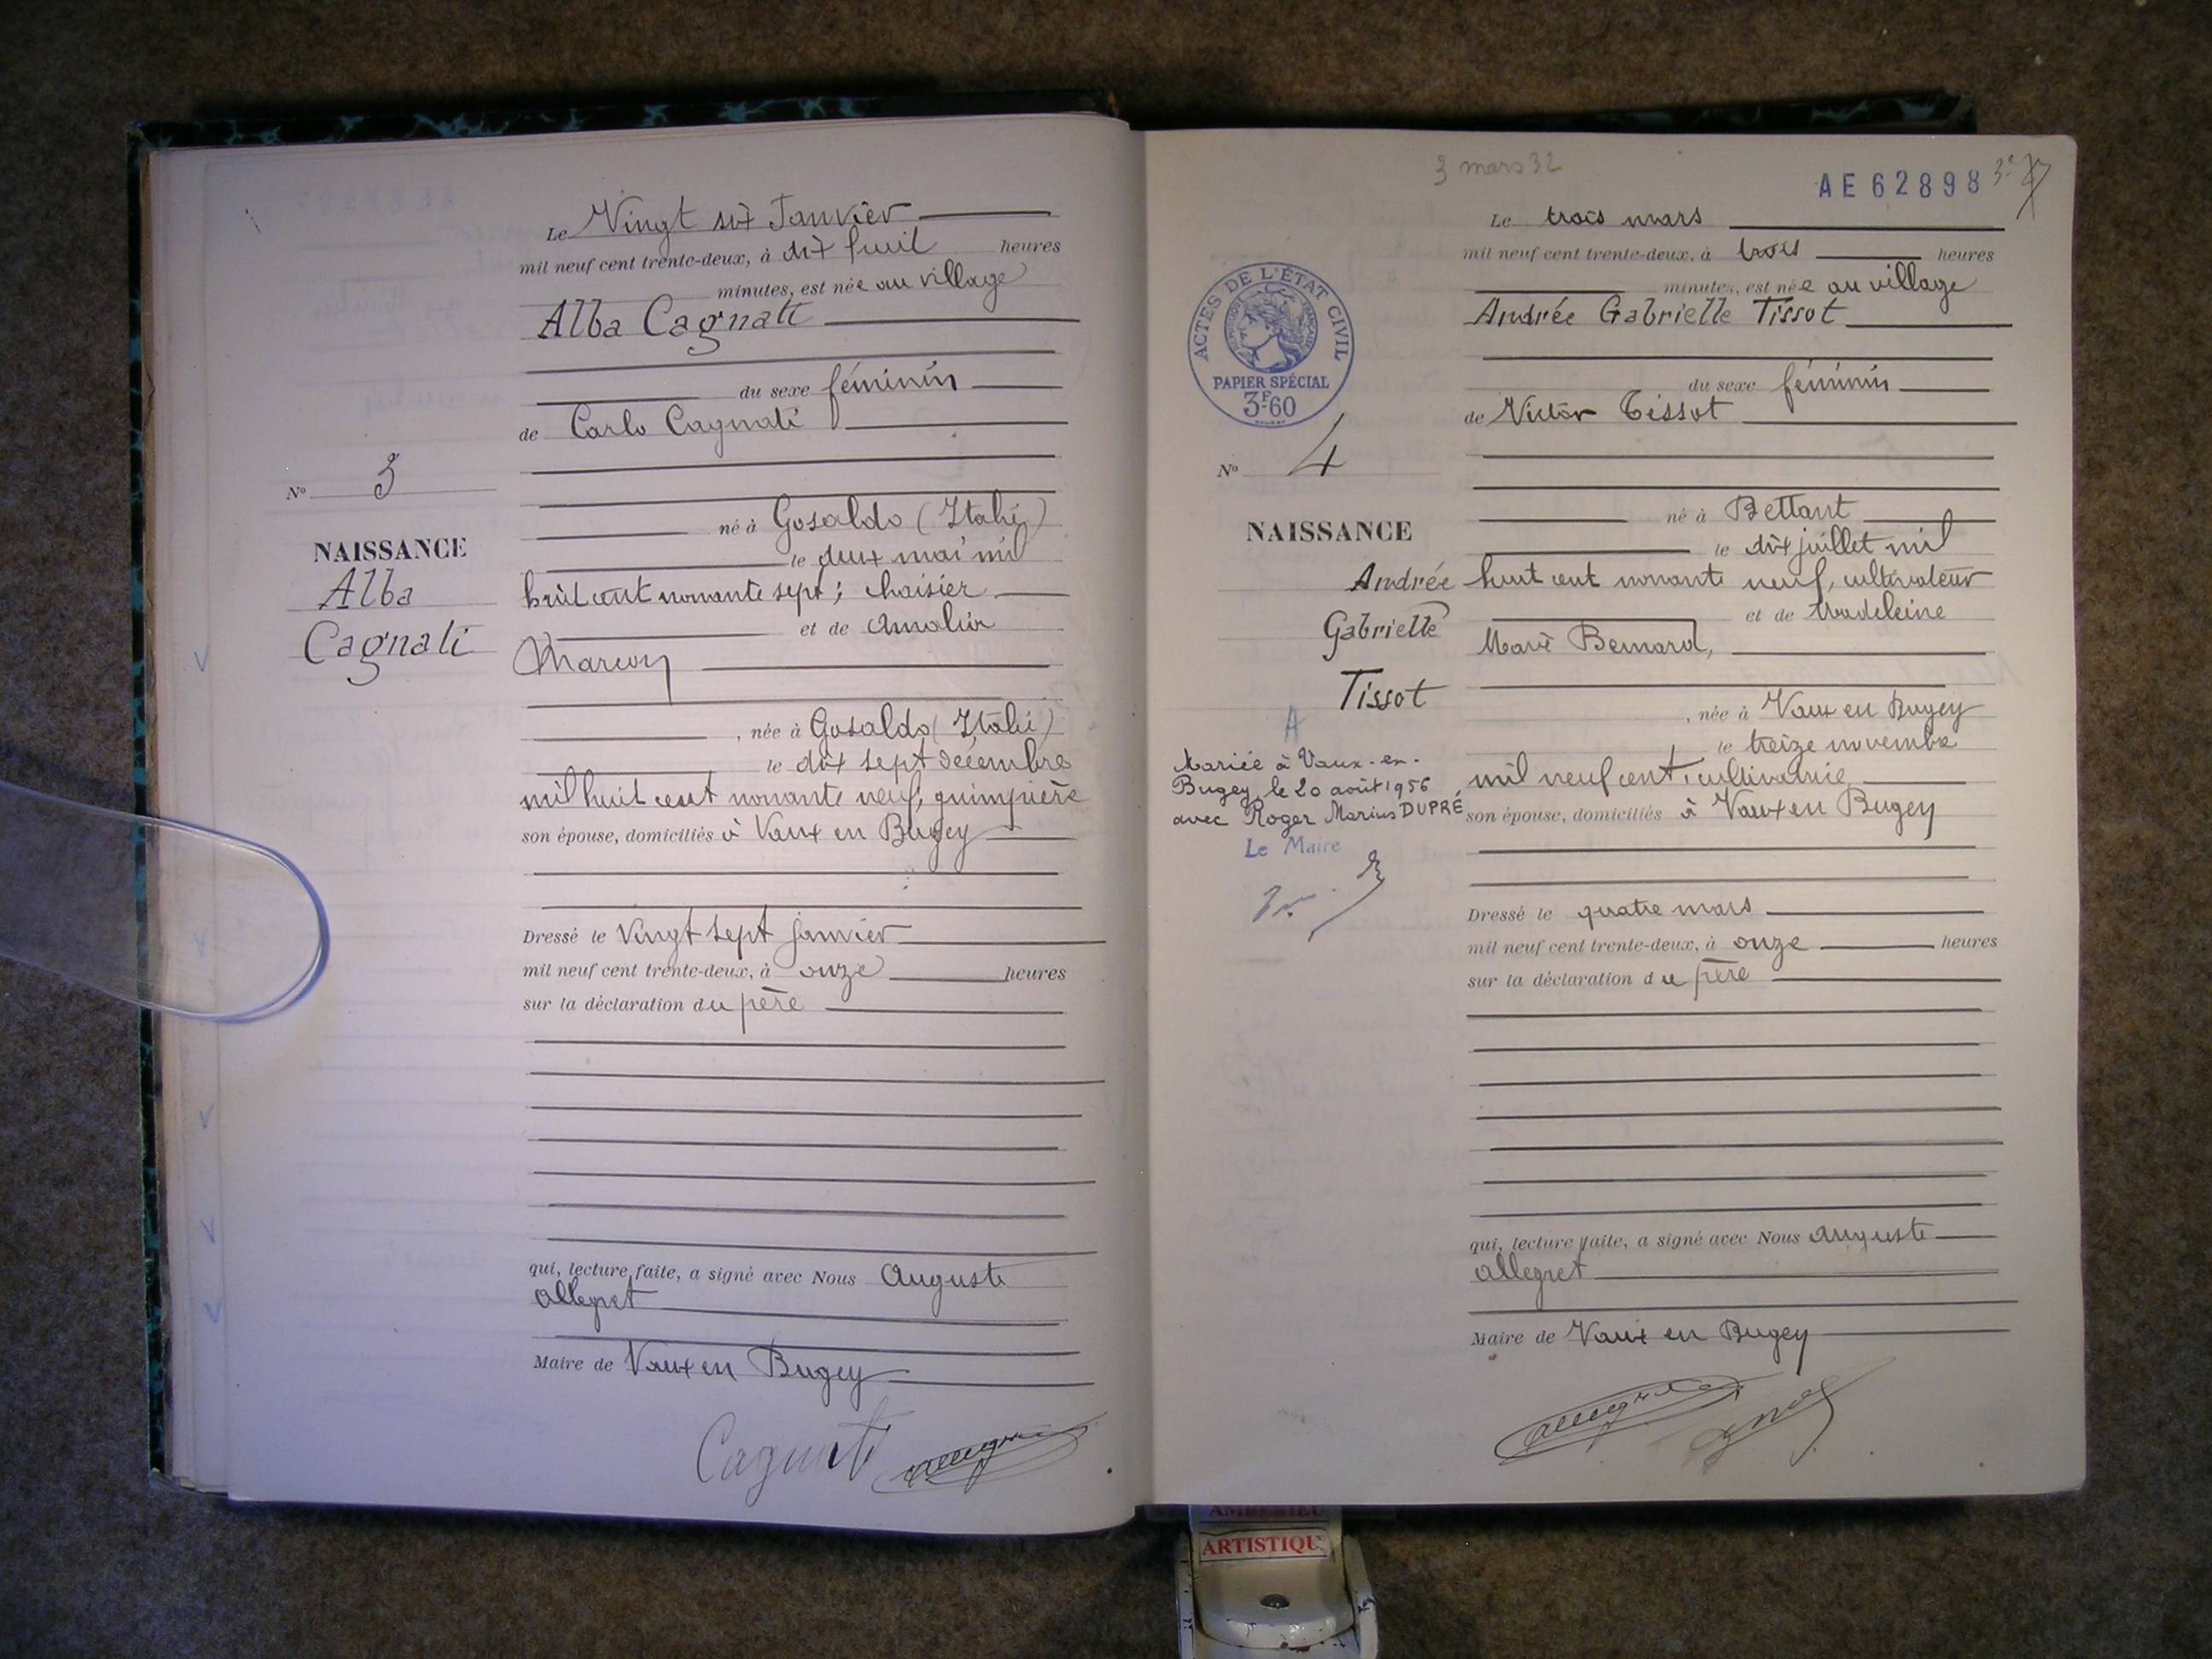 Le Vingt six Janvier
mil neuf cent trente-deux, à dix huit heures
minutes, est née au village
Alba Cagnati
du sexe féminin
de Carlo Cagnati
No 3
né à Gosaldo (Italie)
NAISSANCE
le deux mai mil
Alba
huit cent nonante sept; chaisier
et de Amalia
Cagnati
Marcon
, née à Gosaldo (Italie)
le dix sept décembre
mil huit cent nonante neuf, guimpière
son épouse, domiciliés à Vaux en Bugey
Dressé le Vingt sept janvier
mil neuf cent trente-deux, à onze heures
sur la déclaration du père
qui, lecture faite, a signé avec Nous Auguste
Allegret
Maire de Vaux en Bugey
Cagnati
3 mars 32
AE 62898
Le trois mars
mil neuf cent trente-deux, à trois heures
minutes, est née au village
Andrée Gabrielle Tissot
ACTES DE L'ÉTAT CIVIL
RÉPUBLIQUE FRANÇAISE
PAPIER SPÉCIAL
3F60
du sexe féminin
de Victor Tissot
No 4
né à Bettant
NAISSANCE
le dix juillet mil
Andrée
huit cent nonante neuf, cultivateur
et de Madeleine
Gabrielle
Marie Bernard,
Tissot
, née à Vaux en Bugey
le treize novembre
mil neuf cent, cultivatrice
son épouse, domiciliés à Vaux en Bugey
Mariée à Vaux-en-
Bugey, le 20 août 1956,
avec Roger Marius DUPRÉ
Le Maire
Dressé le quatre mars
mil neuf cent trente-deux, à onze heures
sur la déclaration du père
qui, lecture faite, a signé avec Nous Auguste
Allegret
Maire de Vaux en Bugey
AMBERIEU
ARTISTIQU